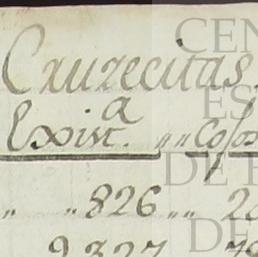 Cruzecitas.
Exist.ª „ „ Co
„ „ 826 „ „ 2
9327 7
CEN
ES
DE
DE